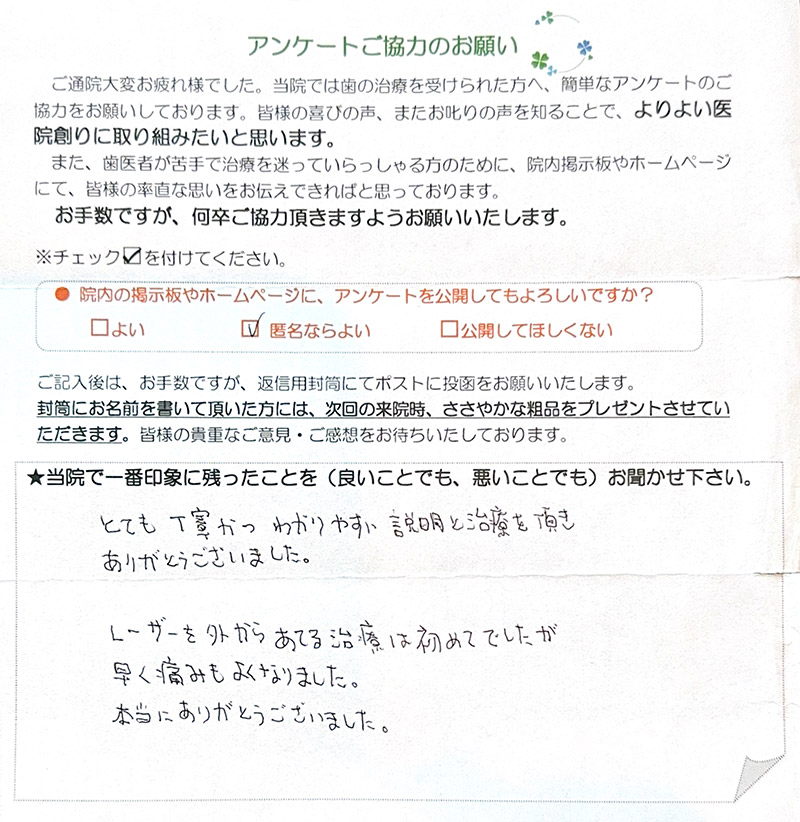 アンケートご協力のお願い
ご通院大変お疲れ様でした。当院では歯の治療を受けられた方へ、簡単なアンケートのご
協力をお願いしております。皆様の喜びの声、またお叱りの声を知ることで、よりよい医
院創りに取り組みたいと思います。
また、歯医者が苦手で治療を迷っていらっしゃる方のために、院内掲示板やホームページ
にて、皆様の率直な思いをお伝えできればと思っております。
お手数ですが、何卒ご協力頂きますようお願いいたします。
※チェック☑を付けてください。
●院内の掲示板やホームページに、アンケートを公開してもよろしいですか？
□よい ☑匿名ならよい □公開してほしくない
ご記入後は、お手数ですが、返信用封筒にてポストに投函をお願いいたします。
封筒にお名前を書いて頂いた方には、次回の来院時、ささやかな粗品をプレゼントさせてい
ただきます。皆様の貴重なご意見・ご感想をお待ちいたしております。
★当院で一番印象に残ったことを（良いことでも、悪いことでも）お聞かせ下さい。
とても丁寧かつわかりやすい説明と治療を頂き
ありがとうございました。
レーザーを外からあてる治療は初めてでしたが
早く痛みもよくなりました。
本当にありがとうございました。